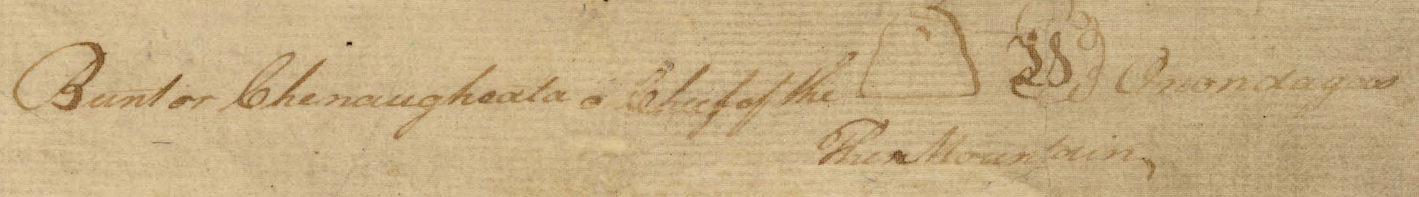 Bunt or Chenaugheata a Cheif of the Onondagas
The Mountain,